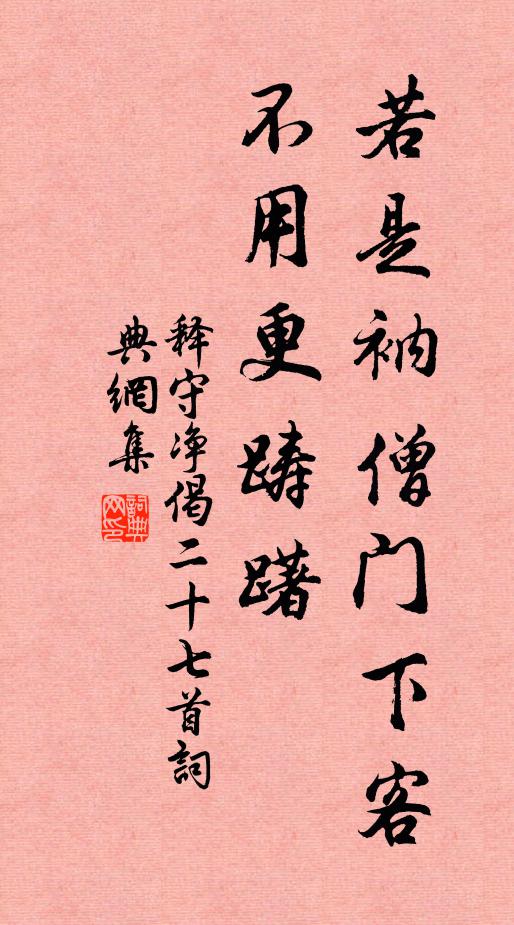 若是衲僧门下客
不用更踌躇
释守净偈二十七首詞
典網集
詞典网印